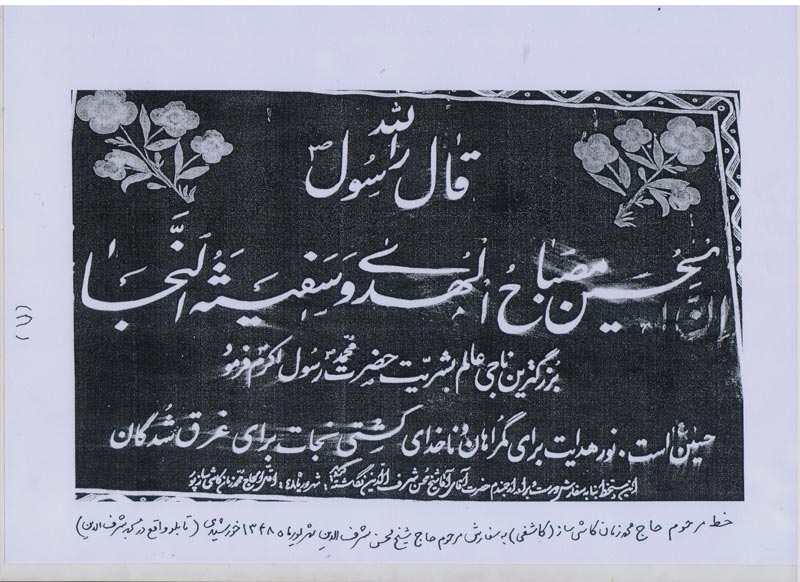 قال رسول الله ص
ان الحسین مصباحُ الهُدی وَ سَفینَةُ النَّجا
بزرگترین ناجی عالم بشریت حضرت محمد ص رسول اکرم فرمود
حسین ع است. نور هدایت برای گمراهان و ناخدای کشتی نجات برای غرق شدگان
خط مرحوم حاج محمد زمان کاشی ساز (کاشفی) به سفارش مرحوم حاج شیخ محسن شرف الدین شهریور ماه ۱۳۴۸ خورشیدی (تابلو واقع در مسجد شرف الدین)